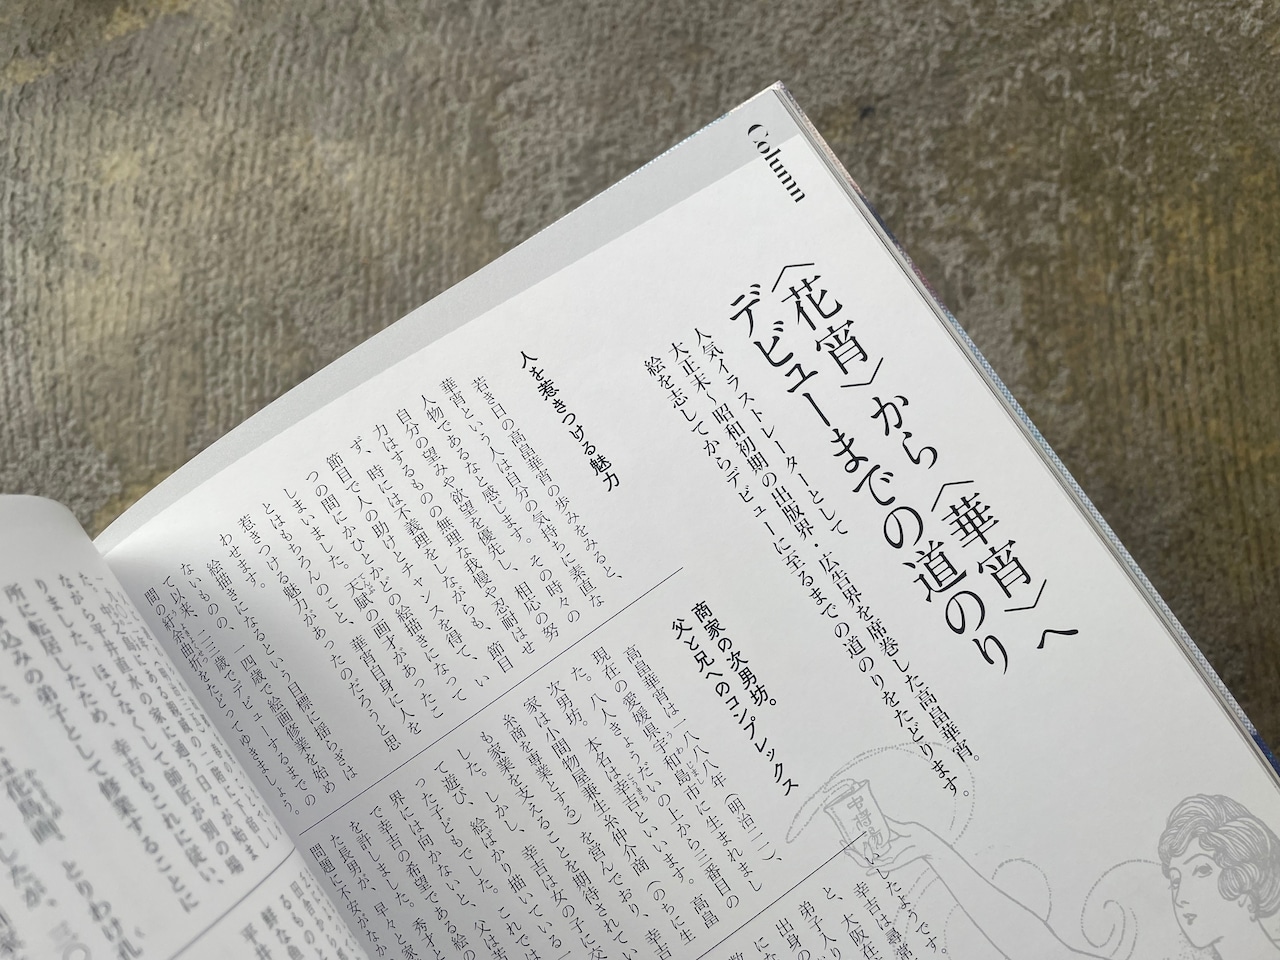 Column
〈花宵〉から〈華宵〉へ
デビューまでの道のり
人気イラストレーターとして
大正末〜昭和初期の出版界・広告界を席巻した高畠華宵。
絵を志してからデビューに至るまでの道のりをたどります。
人を惹きつける魅力
若き日の高畠華宵の歩みをみると、
華宵という人は自分の気持ちに素直な
人物であるなと感じます。その時々の
自分の望みや欲望を優先し、相応の努
力はするものの無理な我慢や忍耐はせ
ず、時には不義理をしながらも、節目
節目で人の助けとチャンスを得て、い
つの間にかひとかどの絵描きになって
しまいました。天賦の画才があったこ
とはもちろんのこと、華宵自身に人を
惹きつける魅力があったのだろうと思
わせます。
絵描きになるという目標に揺らぎは
ないものの、一四歳で絵画修業を始め
て以来、二三歳でデビューするまでの
間の紆余曲折をたどってゆきましょう。
商家の次男坊。
父と兄へのコンプレックス
高畠華宵は一八八八年（明治二一）、
現在の愛媛県宇和島市に生まれまし
た。本名は幸吉といいます。高畠
家は小間物屋兼生糸仲介商（のちに生
糸商を専業とする）を営んでおり、幸吉
も家業を支えることを期待されてい
した。しかし、幸吉は女の子に交
て遊び、絵ばかり描いている
った子どもでした。これでは
界には向かないと、父は苦
で幸吉の希望である絵の
を許しました。秀才と
た長男が、早々と家
問題に不安がなか
いたようです。
幸吉は尋常
と、大阪在
弟子入り
出身の
にな
数
中将湯
所に転居したため、幸吉もこれに従い、
込みの弟子として修業することに